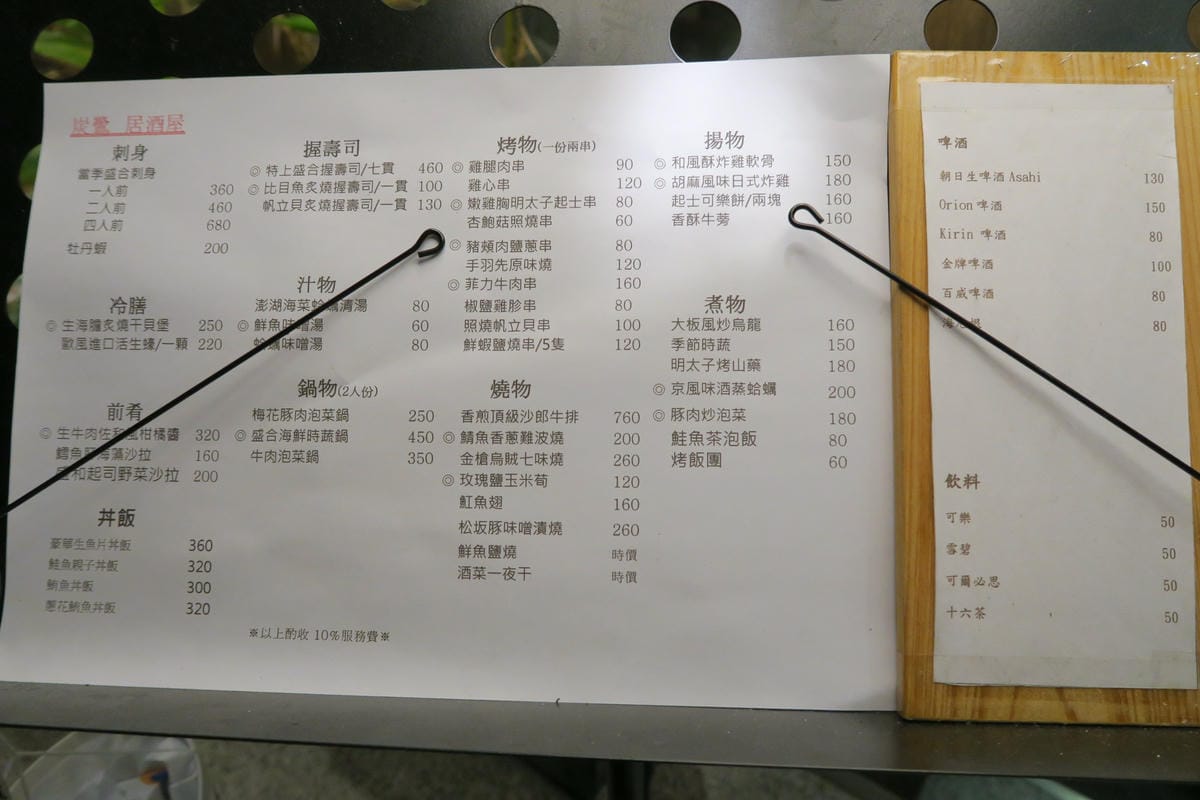 炭鷺 居酒屋
刺身
當季盛合刺身
一人前 360
二人前 460
四人前 680
牡丹蝦 200
冷膳
◎生海膽炙燒干貝堡 250
歐風進口活生蠔/一顆 220
前肴
◎生牛肉佐和風柑橘醬 320
鱈魚肝海藻沙拉 160
和起司野菜沙拉 200
丼飯
豪華生魚片丼飯 360
鮭魚親子丼飯 320
鮪魚丼飯 300
蔥花鮪魚丼飯 320
握壽司
◎特上盛合握壽司/七貫 460
◎比目魚炙燒握壽司/一貫 100
帆立貝炙燒握壽司/一貫 130
汁物
澎湖海菜蛤蠣清湯 80
◎鮮魚味噌湯 60
蛤蠣味噌湯 80
鍋物(2人份)
梅花豚肉泡菜鍋 250
◎盛合海鮮時蔬鍋 450
牛肉泡菜鍋 350
烤物(一份兩串)
◎雞腿肉串 90
雞心串 120
◎嫩雞胸明太子起士串 80
杏鮑菇照燒串 60
◎豬頰肉鹽蔥串 80
手羽先原味燒 120
◎菲力牛肉串 160
椒鹽雞胗串 80
照燒帆立貝串 100
鮮蝦鹽燒串/5隻 120
燒物
香煎頂級沙郎牛排 760
◎鯖魚香蔥難波燒 200
金槍烏賊七味燒 260
◎玫瑰鹽玉米筍 120
魟魚翅 160
松坂豚味噌漬燒 260
鮮魚鹽燒 時價
酒菜一夜干 時價
揚物
◎和風酥炸雞軟骨 150
◎胡麻風味日式炸雞 180
起士可樂餅/兩塊 160
香酥牛蒡 160
煮物
大板風炒烏龍 160
季節時蔬 150
明太子烤山藥 180
◎京風味酒蒸蛤蠣 200
◎豚肉炒泡菜 180
鮭魚茶泡飯 80
烤飯團 60
※以上酌收 10%服務費※
啤酒
朝日生啤酒 Asahi 130
Orion 啤酒 150
Kirin 啤酒 80
金牌啤酒 100
百威啤酒 80
海尼根 80
飲料
可樂 50
雪碧 50
可爾必思 50
十六茶 50